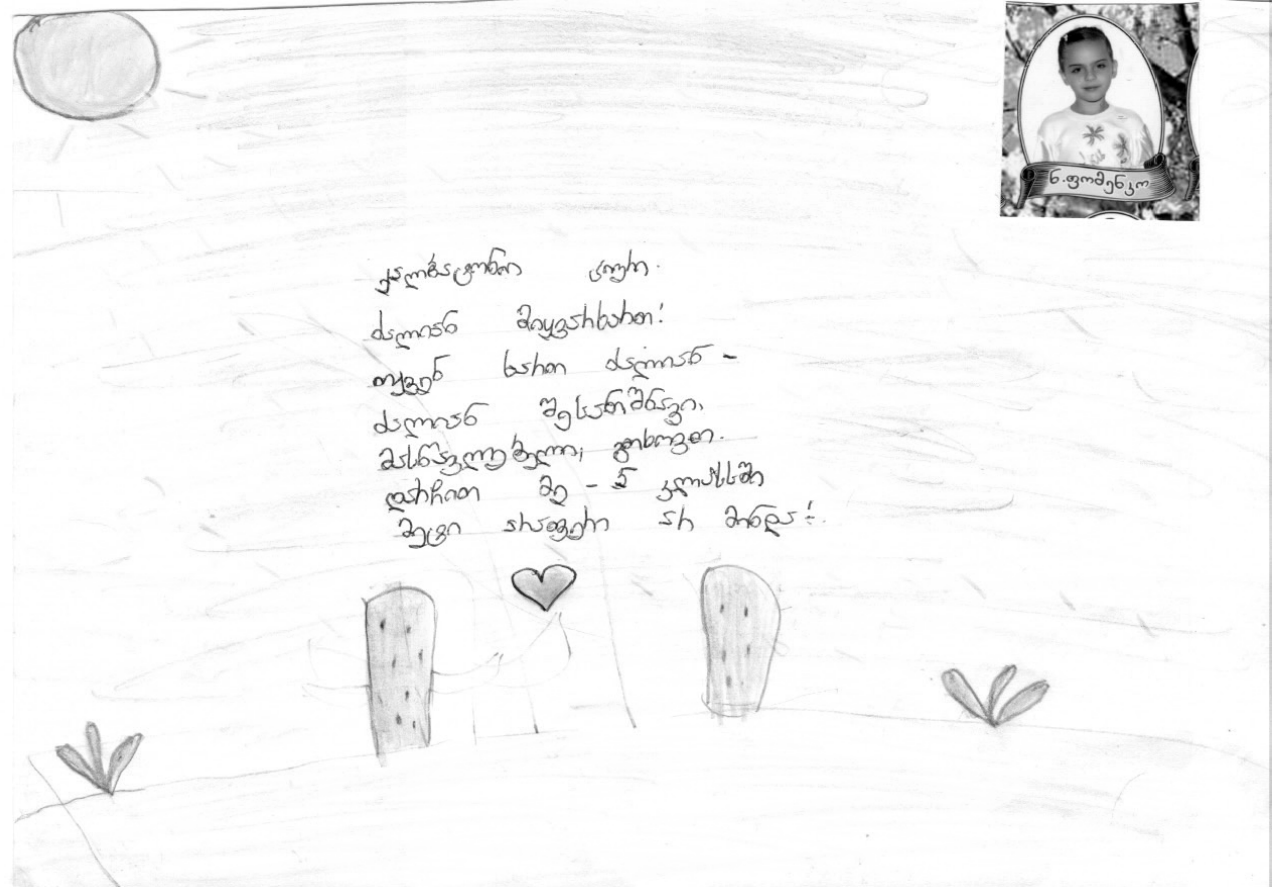 ნ. ფომენკო
ქალბატონო ციური.
ძალიან მიყვარხართ!
თქვენ ხართ ძალიან -
ძალიან შესანიშნავი,
მასწავლებელი, გთხოვთ.
დარჩით მე - 5 კლასში
მეტი არაფერი არ მინდა!